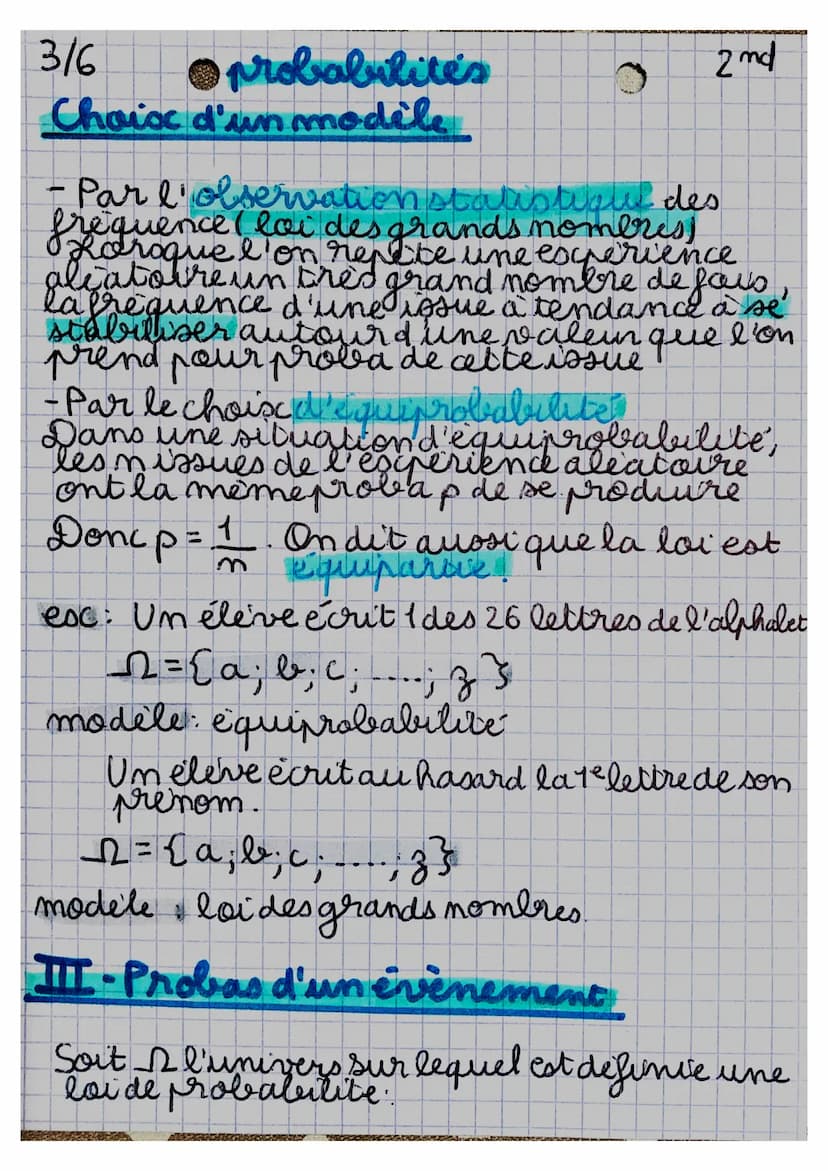 3/6
probabilités
2nd
Choix d'un modèle
- Par l'observation statistique des
fréquence (loi des grands nombres)
Lorsque l'on repète une expérience
aléatoire un très grand nombre de fois,
la fréquence d'une issue à tendance à se
stabiliser autour d'une valeur que l'on
prend pour proba de cette issue
- Par le choix d'équiprobabilité
Dans une situation d'équiprobabilité,
les n issues de l'expérience aléatoire
ont la même proba p de se produire
Donc p = 1/n. On dit aussi que la loi est
équipartie!
ex: Un élève écrit 1 des 26 lettres de l'alphabet
Ω = {a; b; c; ....; z}
modèle: équiprobabilité
Un élève écrit au hasard la 1e lettre de son
prénom.
Ω = {a; b; c; ....; z}
modèle: loi des grands nombres.
III - Probas d'un évènement
Soit Ω l'univers sur lequel est définie une
loi de probabilité.